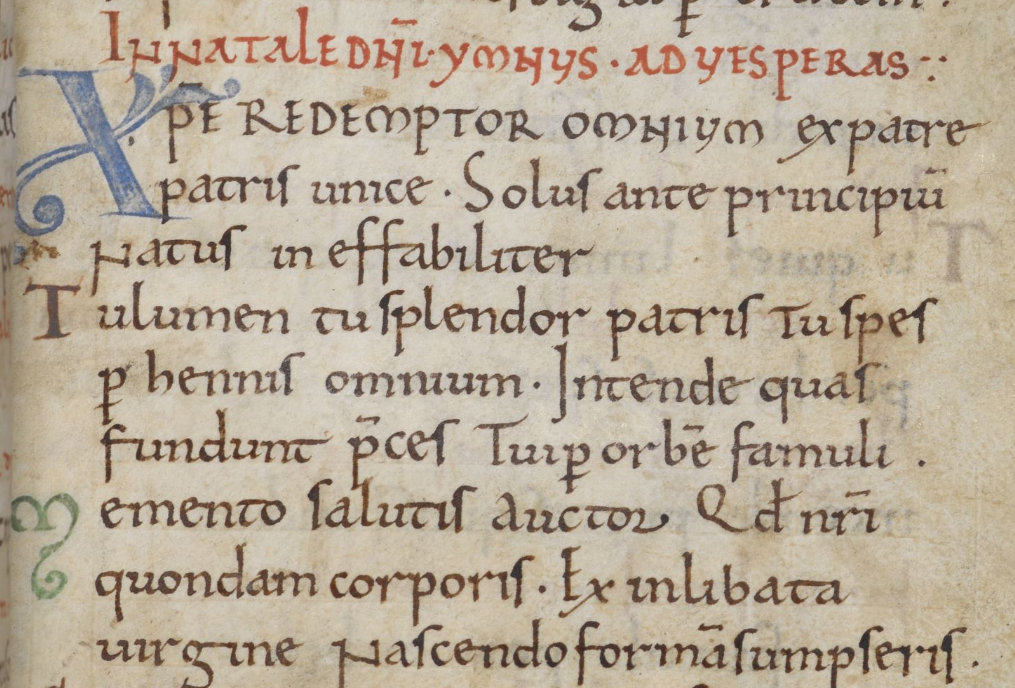 IN NATALE DN̄I · YMNUS · AD VESPERAS ·:
XP̄E REDEMPTOR OMNIUM ex patre
patris unice · Solus ante principiū
Natus ineffabiliter
Tu lumen tu splendor patris Tu spes
ꝑhennis omnium · Intende quas
fundunt p̄ces Tui ꝑ orbē famuli .
Memento salutis auctor Qđ nr̄i
quondam corporis · Ex inlibata
uirgine Nascendo formā sumpseris .